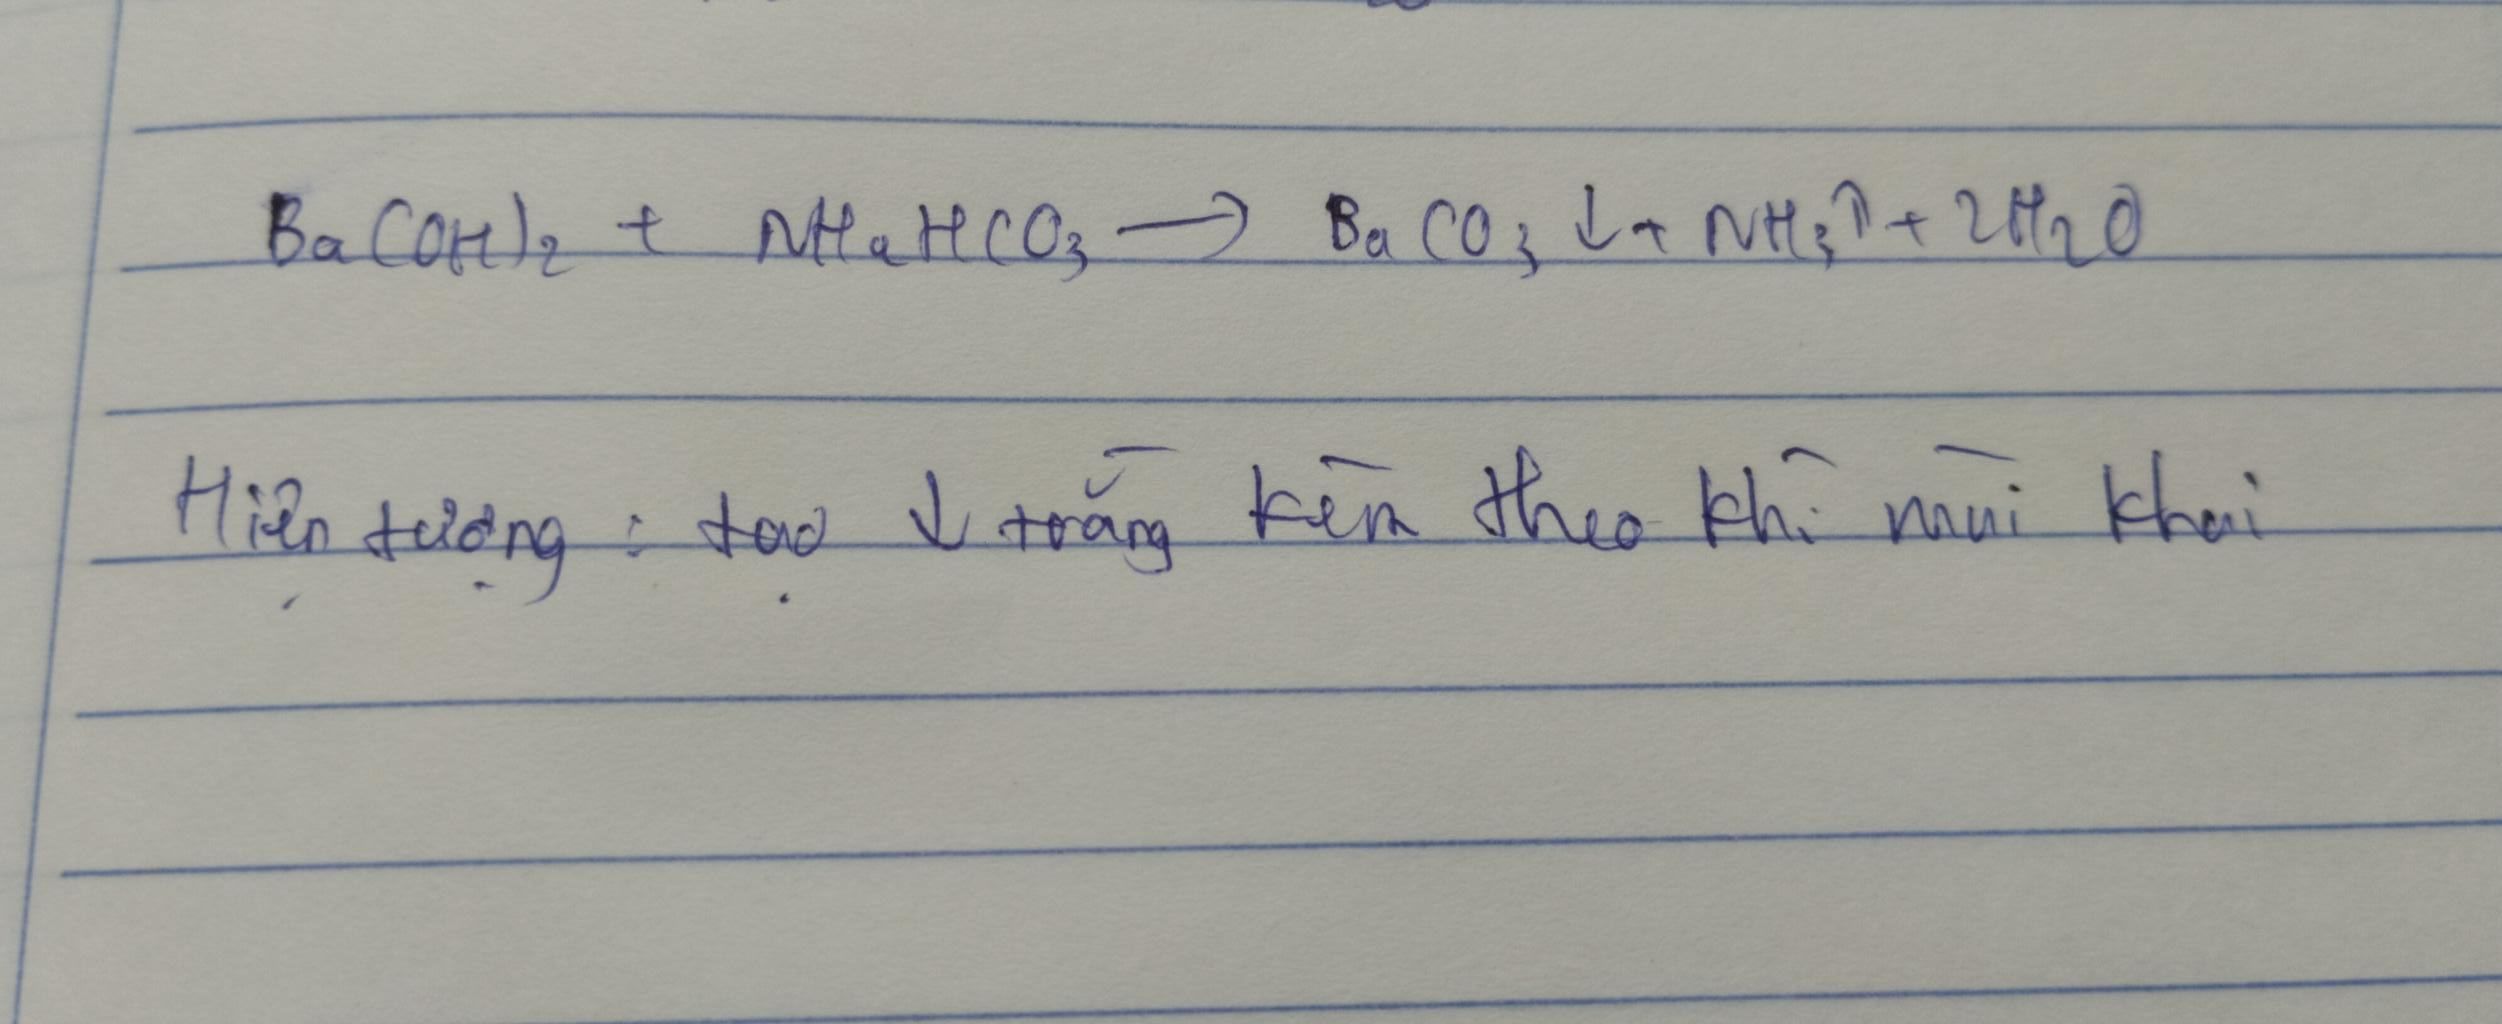 Ba(OH)₂ + NH₄HCO₃ → BaCO₃ ↓ + NH₃↑ + 2H₂O
Hiện tượng : tạo ↓ trắng kèm theo khí mùi khai